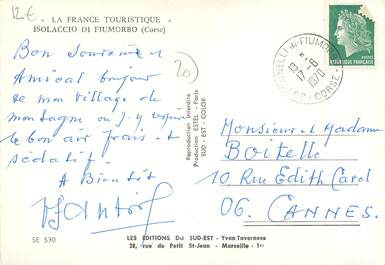 12€
" LA FRANCE TOURISTIQUE "
ISOLACCIO DI FIUMORBO (Corse)
Bon Souvenir et
Amical bonjour
de mon village de
montagne où j'y respire
le bon air frais et
sédatif.
A Bientôt
20
Reproduction Interdite
Production ESTEL - Paris
SUD - EST - COLOR
DI FIUMORBO
17-8
1970
CORSE
REPUBLIQUE FRANCAISE
Monsieur et Madame
Boitelle
10 Rue Edith Cavel
06. CANNES.
SE 570
LES EDITIONS DU SUD-EST - Yvan Tavernese
28, rue du Petit St-Jean - Marseille - 1er